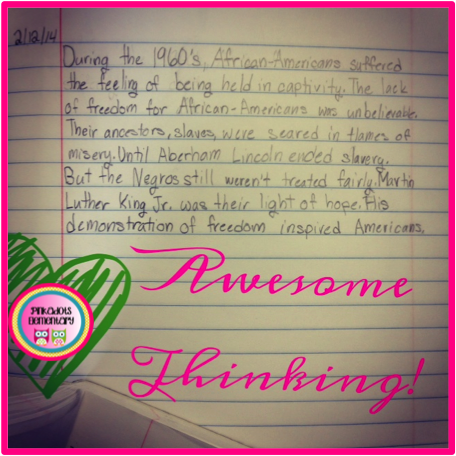 2/12/14
During the 1960's, African-Americans suffered
the feeling of being held in captivity. The lack
of freedom for African-Americans was unbelievable.
Their ancestors, slaves, were seared in flames of
misery. Until Aberham Lincoln ended slavery.
But the Negros still weren't treated fairly. Martin
Luther King Jr. was their light of hope. His
demonstration of freedom inspired Americans.
Awesome
Thinking!
Pinkadots
Elementary